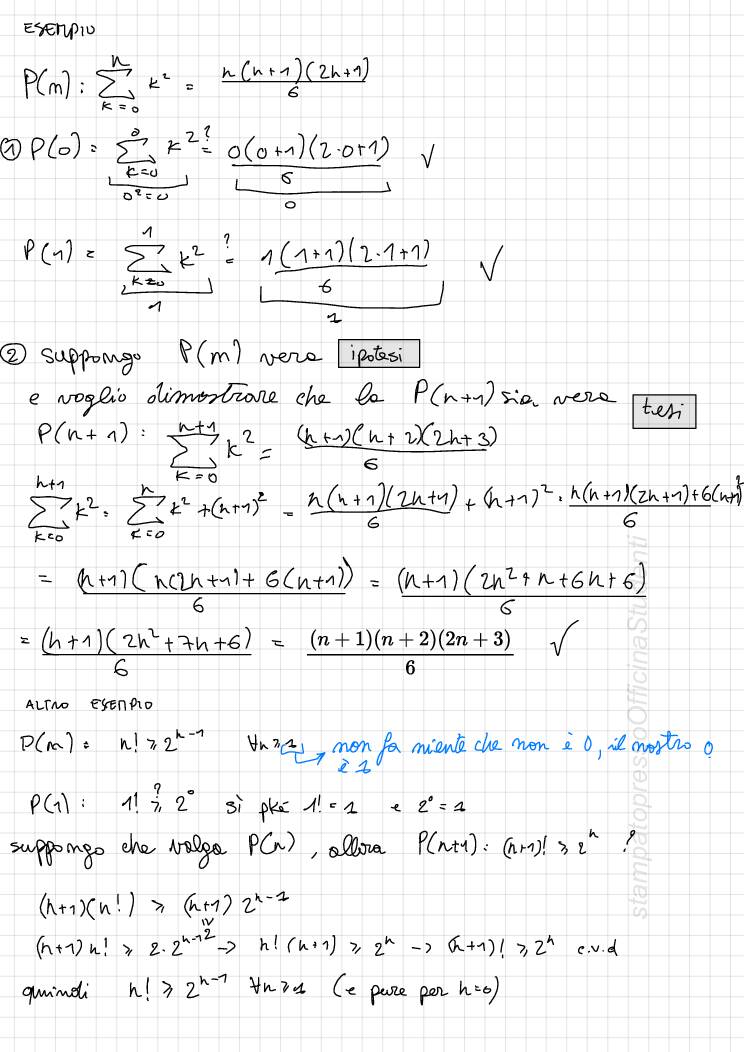 ESEMPIO
P(n): ∑_{k=0}^{n} k² = n(n+1)(2n+1)/6
① P(0) = ∑_{k=0}^{0} k² ?= 0(0+1)(2·0+1)/6 √
0²=0 0
P(1) = ∑_{k=0}^{1} k² ?= 1(1+1)(2·1+1)/6 √
1 1
② suppongo P(n) vera ipotesi
e voglio dimostrare che la P(n+1) sia vera tesi
P(n+1): ∑_{k=0}^{n+1} k² = (n+1)(n+2)(2n+3)/6
∑_{k=0}^{n+1} k² = ∑_{k=0}^{n} k² + (n+1)² = n(n+1)(2n+1)/6 + (n+1)² = n(n+1)(2n+1)+6(n+1)²/6
= (n+1)(n(2n+1)+6(n+1))/6 = (n+1)(2n²+n+6n+6)/6
= (n+1)(2n²+7n+6)/6 = (n+1)(n+2)(2n+3)/6 √
ALTRO ESEMPIO
P(n) = n! ≥ 2^{n-1} ∀n≥1 → non fa niente che non è 0, il nostro 0
è 1
P(1): 1! ?≥ 2⁰ sì pké 1!=1 e 2⁰=1
suppongo che valga P(n), allora P(n+1): (n+1)! ≥ 2^n ?
(n+1)(n!) ≥ (n+1) 2^{n-1}
≥ 2
(n+1) n! ≥ 2·2^{n-1} → n!(n+1) ≥ 2^n → (n+1)! ≥ 2^n c.v.d
quindi n! ≥ 2^{n-1} ∀n≥1 (e pure per n=0)
stampatopressoOfficinaStudenti